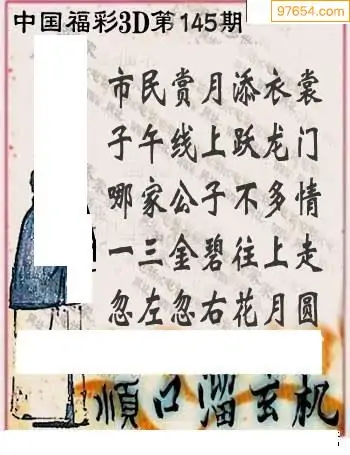 97654.com
中国福彩3D第145期
市民赏月添衣裳
子午线上跃龙门
哪家公子不多情
一三金碧往上走
忽左忽右花月圆
順口溜玄机